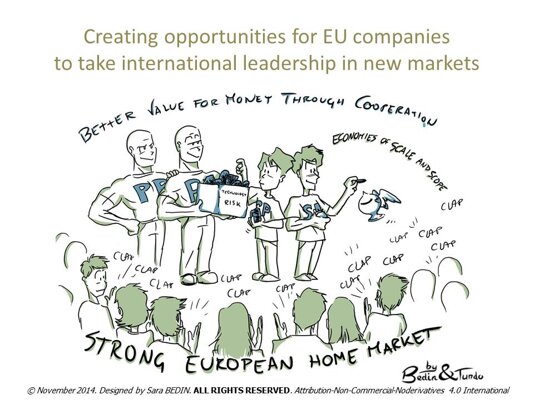 Creating opportunities for EU companies
to take international leadership in new markets
BETTER VALUE FOR MONEY THROUGH COOPERATION
ECONOMIES OF SCALE AND SCOPE
PP
P
TECHNOLOGY
RISK
PP
CLAP
CLAP
CLAP
CLAP
CLAP
CLAP
CLAP
CLAP
CLAP
CLAP
CLAP
CLAP
STRONG EUROPEAN HOME MARKET
by
Bedin & Tundo
© November 2014. Designed by Sara BEDIN. ALL RIGHTS RESERVED. Attribution-Non-Commercial-Noderivatives 4.0 International